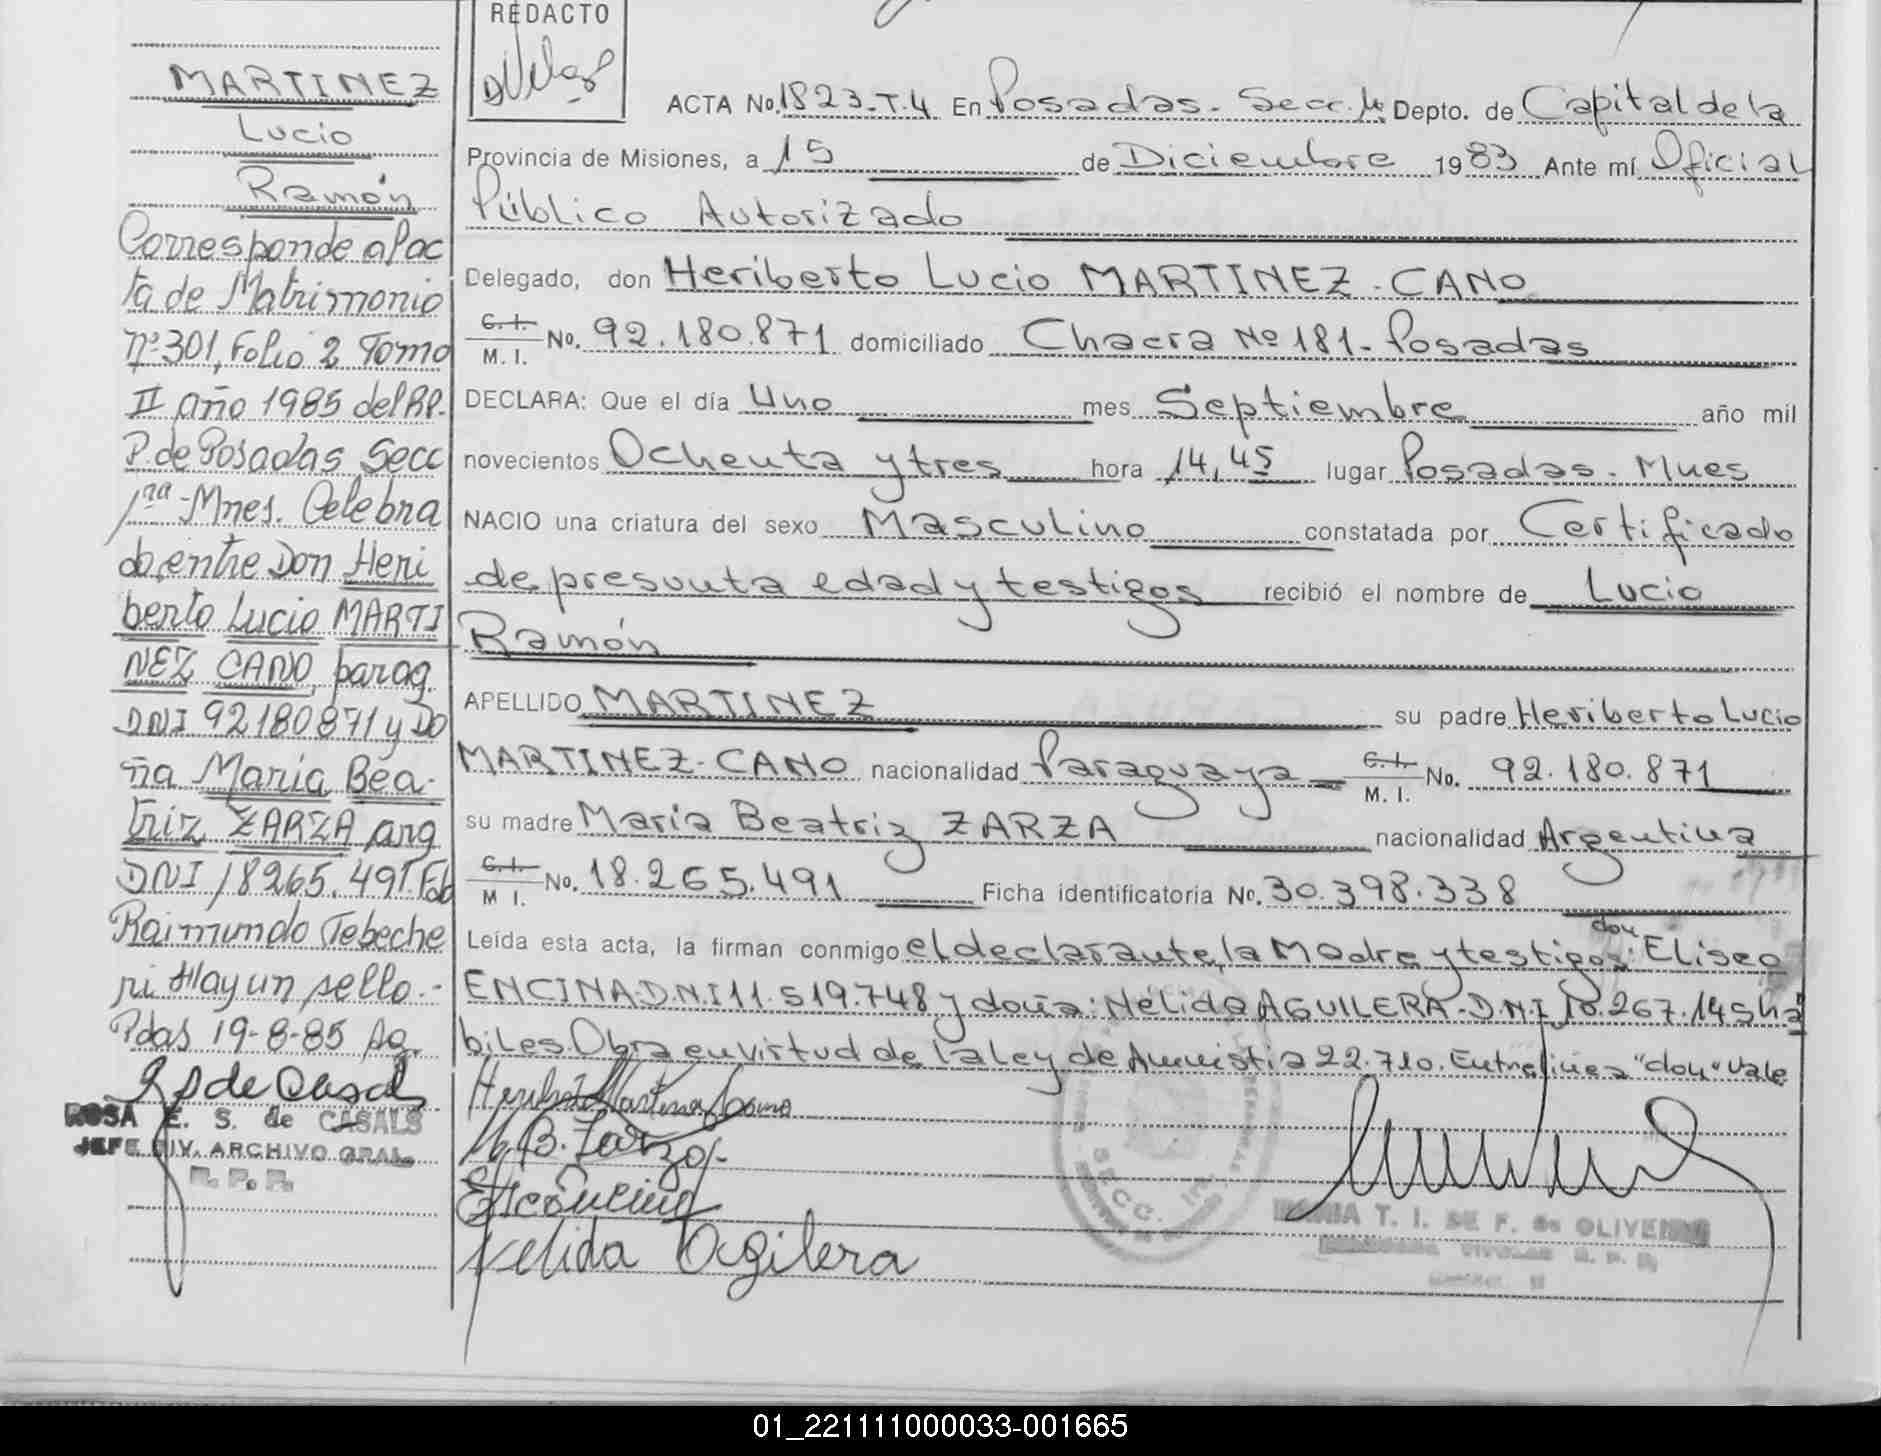 REDACTO
MARTINEZ
Lucio
Ramón
Corresponde al ac
ta de Matrimonio
nº 301, Folio 2 Tomo
II año 1985 del RP.
P. de Posadas Secc
1ra - Mnes. Celebra
do, entre Don Heri
berto Lucio MARTI
NEZ CANO, parag.
DNI 92180871 y Do
ña Maria Bea-
triz ZARZA arg
DNI 18265.491. Fdo
Raimundo Tebeche
ri Hay un sello.-
Pdas 19-8-85
ROSA E. S. de CASALS
JEFE DIV. ARCHIVO GRAL.
R. P. P.
ACTA No. 1823-T.4 En Posadas. Secc. Depto. de Capital de la
Provincia de Misiones, a 15 de Diciembre 1983 Ante mí Oficial
Público Autorizado
Delegado, don Heriberto Lucio MARTINEZ-CANO
C. I. M. I. No. 92.180.871 domiciliado Chacra Nº 181- Posadas
DECLARA: Que el día Uno mes Septiembre año mil
novecientos Ochenta y tres hora 14,45 lugar Posadas. Mnes
NACIO una criatura del sexo Masculino constatada por Certificado
de presunta edad y testigos recibió el nombre de Lucio
Ramón
APELLIDO MARTINEZ su padre Heriberto Lucio
MARTINEZ-CANO nacionalidad Paraguaya C. I. M. I. No. 92.180.871
su madre Maria Beatriz ZARZA nacionalidad Argentina
C. I. M I. No. 18.265.491 Ficha identificatoria No. 30.398.338
don
Leída esta acta, la firman conmigo el declarante, la Madre y testigos: Eliseo
ENCINA-D.N.I 11.519.748 y doña: Nélida AGUILERA-D.N.I 10.267.145 há
biles. Obra en virtud de la ley de Amnistia 22.710. Entrelinea "don" vale
M. B. Zarza
Nelida Agilera
SECC. 1ra.
MARIA T. I. DE F. de OLIVEIRA
01_221111000033-001665